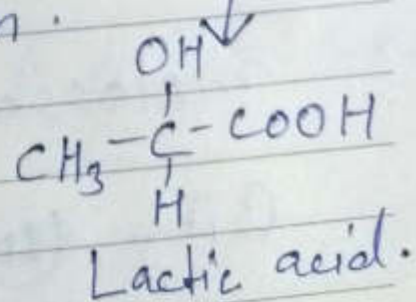 n.
OH
CH₃-C-COOH
H
Lactic acid.